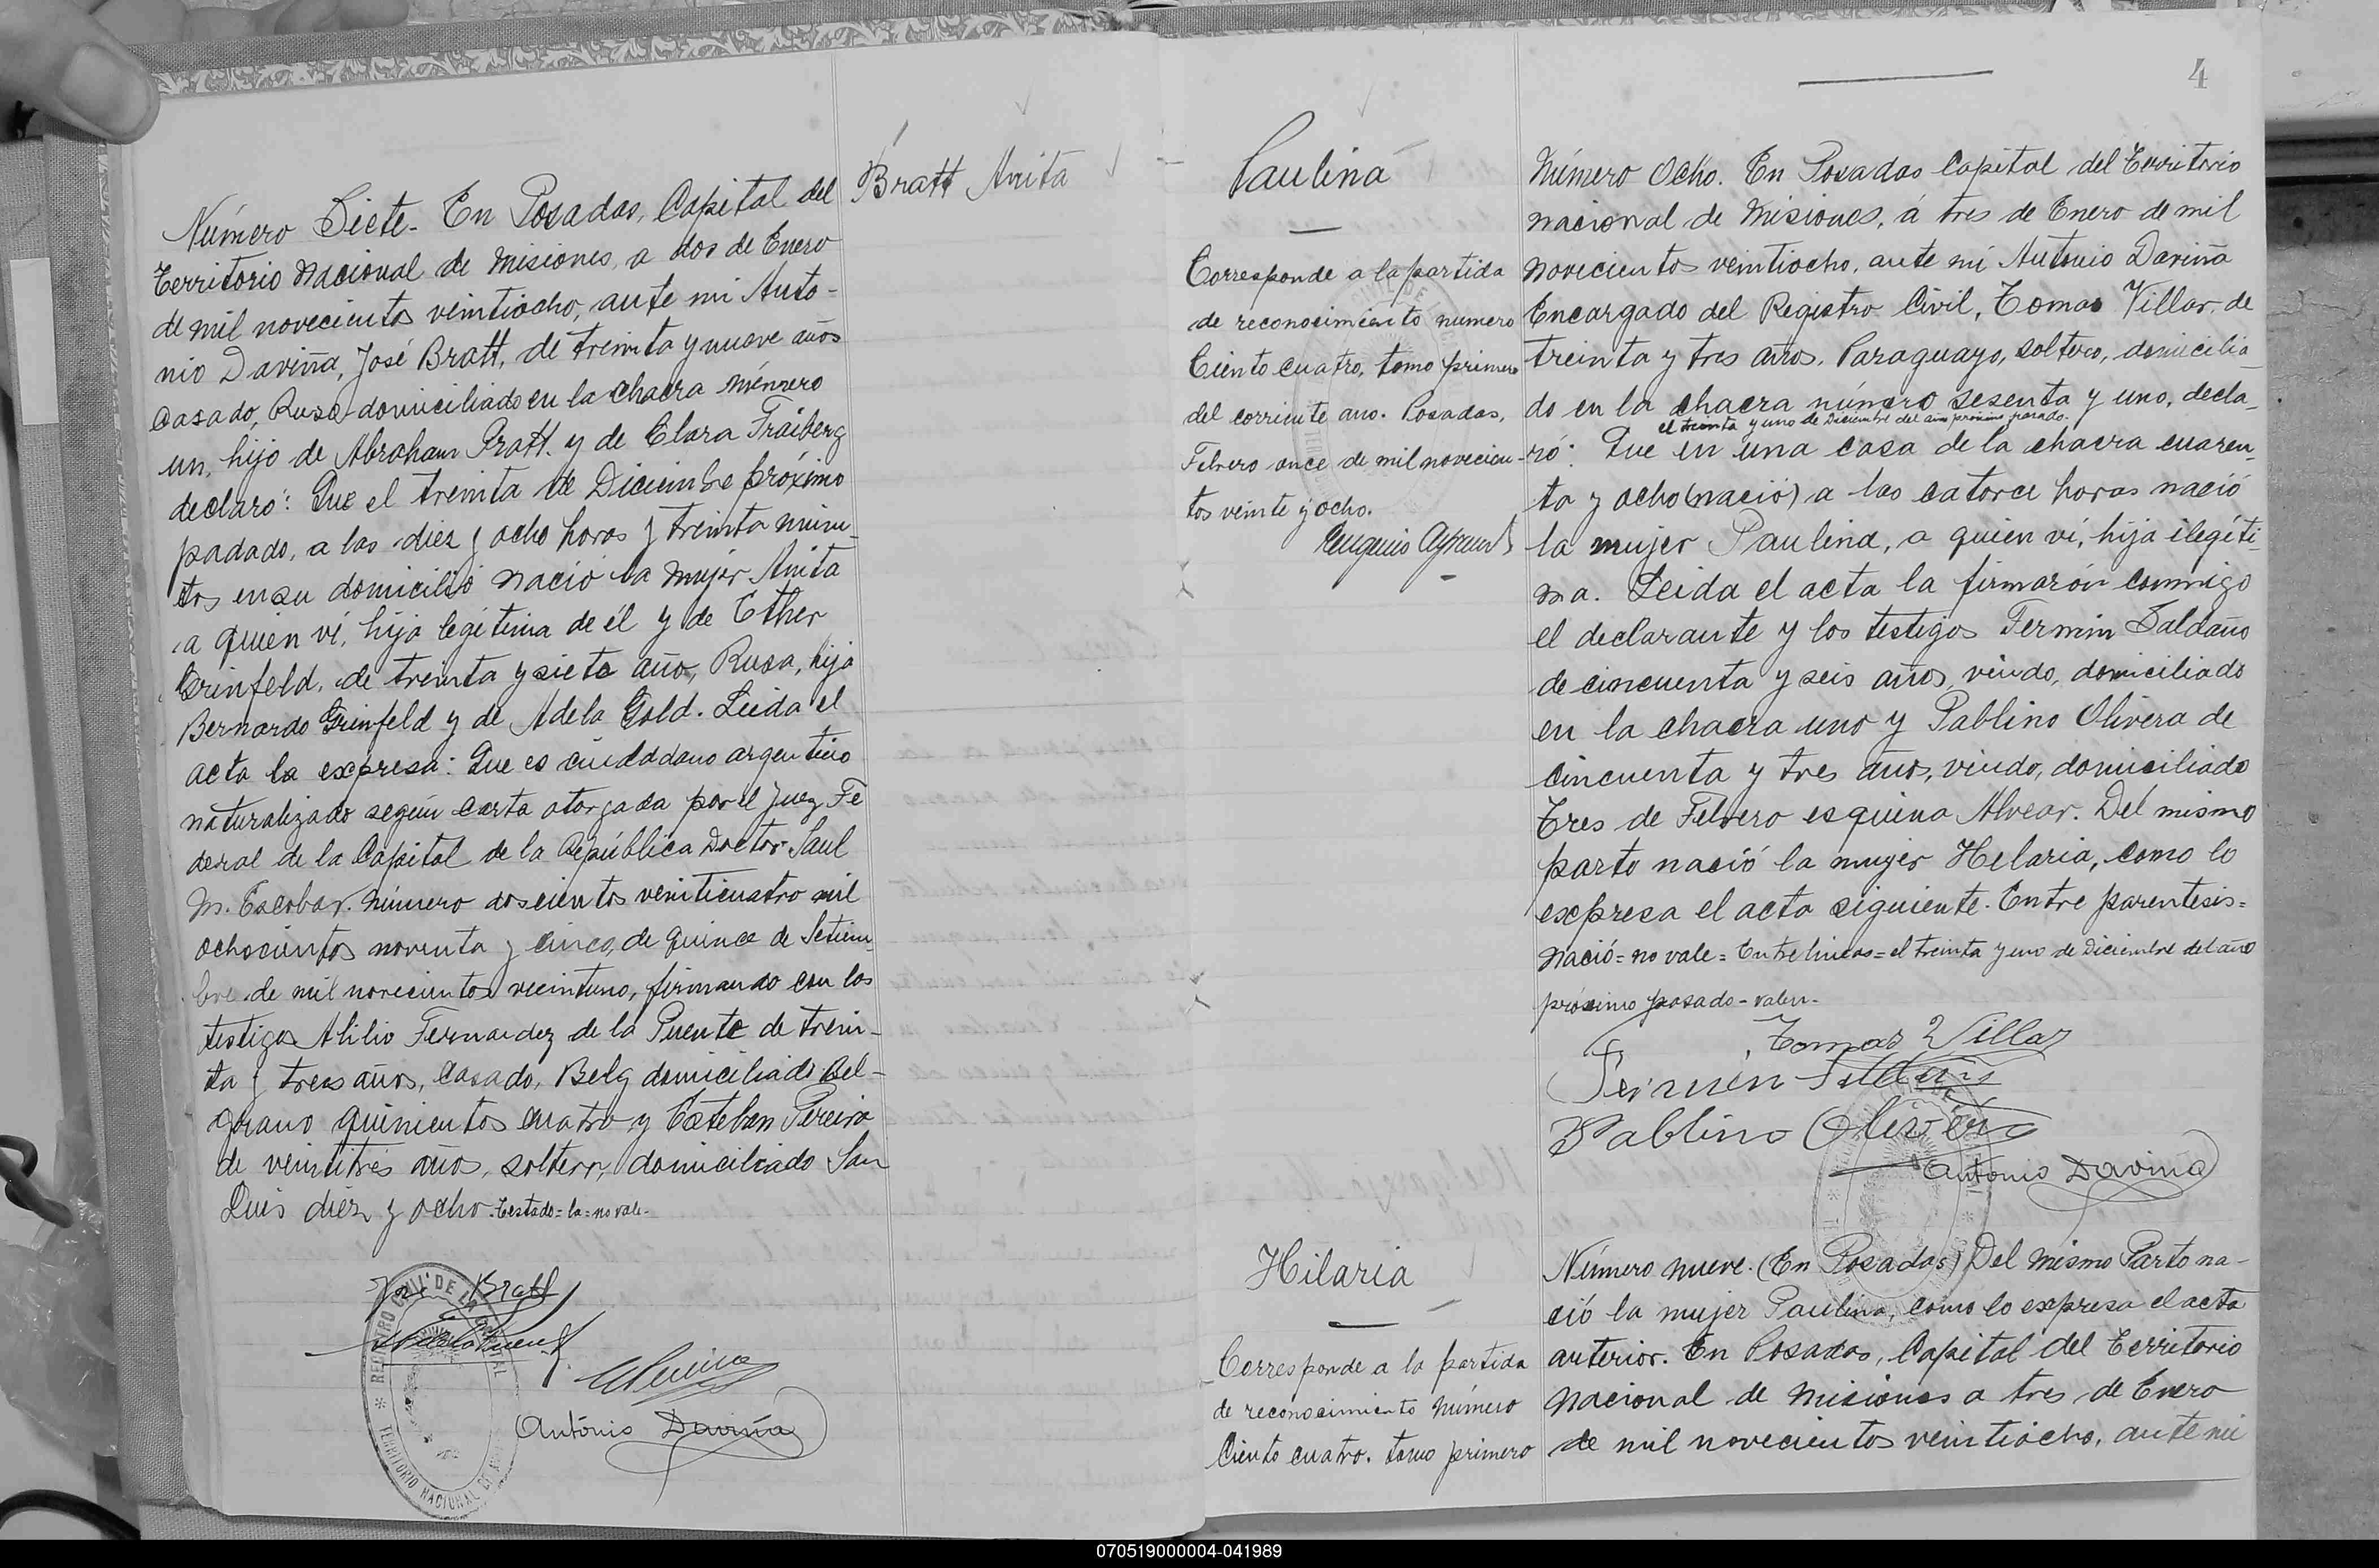 Bratt Anita
Número Siete. En Posadas, Capital del
Territorio Nacional de Misiones, a dos de Enero
de mil novecientos veintiocho, ante mi Anto-
nio Daviña, José Bratt, de treinta y nueve años
casado, Ruso domiciliado en la chacra número
un, hijo de Abraham Bratt y de Clara Fraiberg
declaró: Que el treinta de Diciembre próximo
padado, a las diez y ocho horas y treinta minu-
tos en su domicilio nació la mujer Anita
a quien ví, hija legítima de él y de Ether
Grinfeld, de treinta y siete año, Rusa, hija
Bernardo Grinfeld y de Adela Gold. Leida el
acta la expresa: Que es ciudadano argentino
naturalizado según carta otorgada por el Juez Fe
deral de la Capital de la República Doctor Saul
M. Escobar. Número doscientos veinticuatro mil
ochocientos noventa y cinco, de quince de Setiem-
bre de mil novecientos veintiuno, firmando con los
testigos Atilio Fernandez de la Puente de trein-
ta y tres años, casado, Belg domiciliado Bel-
grano quinientos cuatro y Esteban Pereira
de veintitrés años, soltero, domiciliado San
Luis diez y ocho. Testado=la=no vale-
José Bratt
Antonio Daviña
REGISTRO CIVIL DE LA CAPITAL
TERRITORIO NACIONAL DE
4
Paulina
Corresponde a la partida
de reconocimiento numero
Ciento cuatro, tomo primero
del corriente ano. Posadas,
Febrero once de mil novecien-
tos veinte y ocho.
Número Ocho. En Posadas Capital del Territorio
Nacional de Misiones, á tres de Enero de mil
novecientos veintiocho, ante mi Antonio Daviña
Encargado del Registro Civil, Tomas Villar, de
treinta y tres años, Paraguayo, soltero, domicilia-
do en la chacra número sesenta y uno, decla-
el treinta y uno de Diciembre del año próximo pasado.
ró: Que en una casa de la chacra cuaren-
ta y ocho (nació) a las catorce horas nació
la mujer Paulina, a quien ví, hija ilegíti-
ma. Leida el acta la firmarón conmigo
el declarante y los testigos Fermin Saldaño
de cincuenta y seis años, viudo, domiciliado
en la chacra uno y Pablino Olivera de
cincuenta y tres años, viudo, domiciliado
Tres de Febrero esquina Alvear. Del mismo
parto nació la mujer Helaria, como lo
expresa el acta siguiente. Entre parentesis=
nació=no vale=Entre lineas=el treinta y uno de Diciembre del año
próximo pasado-valen-
Tomas Villar
Fermin Saldaño
Pablino Olivera
Antonio Daviña
Hilaria
Corresponde a la partida
de reconocimiento número
Ciento cuatro. tomo primero
Número nueve. (En Posadas) Del mismo Parto na-
ció la mujer Paulina, como lo expresa el acta
anterior. En Posadas, Capital del Territorio
Nacional de Misiones a tres de Enero
de mil novecientos veintiocho, ante mi
070519000004-041989